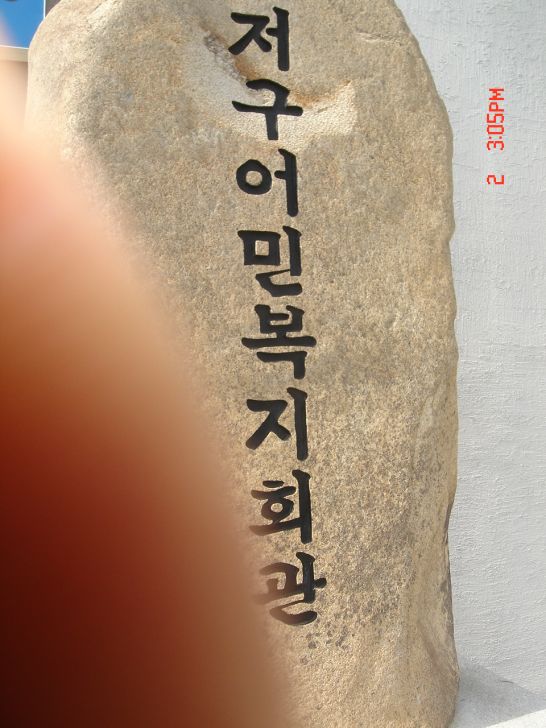 저구어민복지회관
2 3:05PM